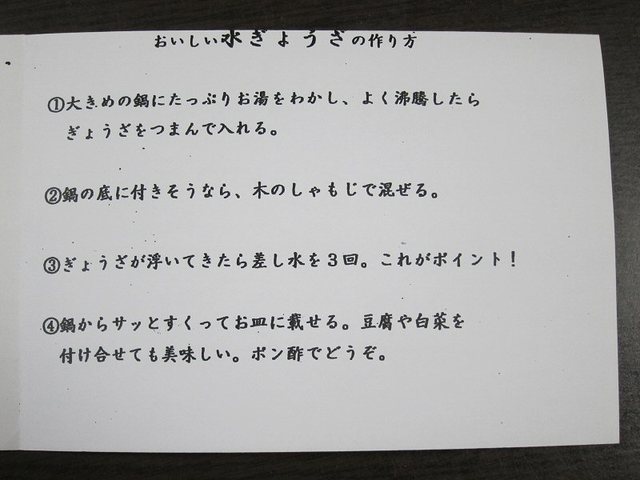 おいしい水ぎょうざの作り方
①大きめの鍋にたっぷりお湯をわかし、よく沸騰したら
ぎょうざをつまんで入れる。
②鍋の底に付きそうなら、木のしゃもじで混ぜる。
③ぎょうざが浮いてきたら差し水を3回。これがポイント!
④鍋からサッとすくってお皿に載せる。豆腐や白菜を
付け合せても美味しい。ポン酢でどうぞ。